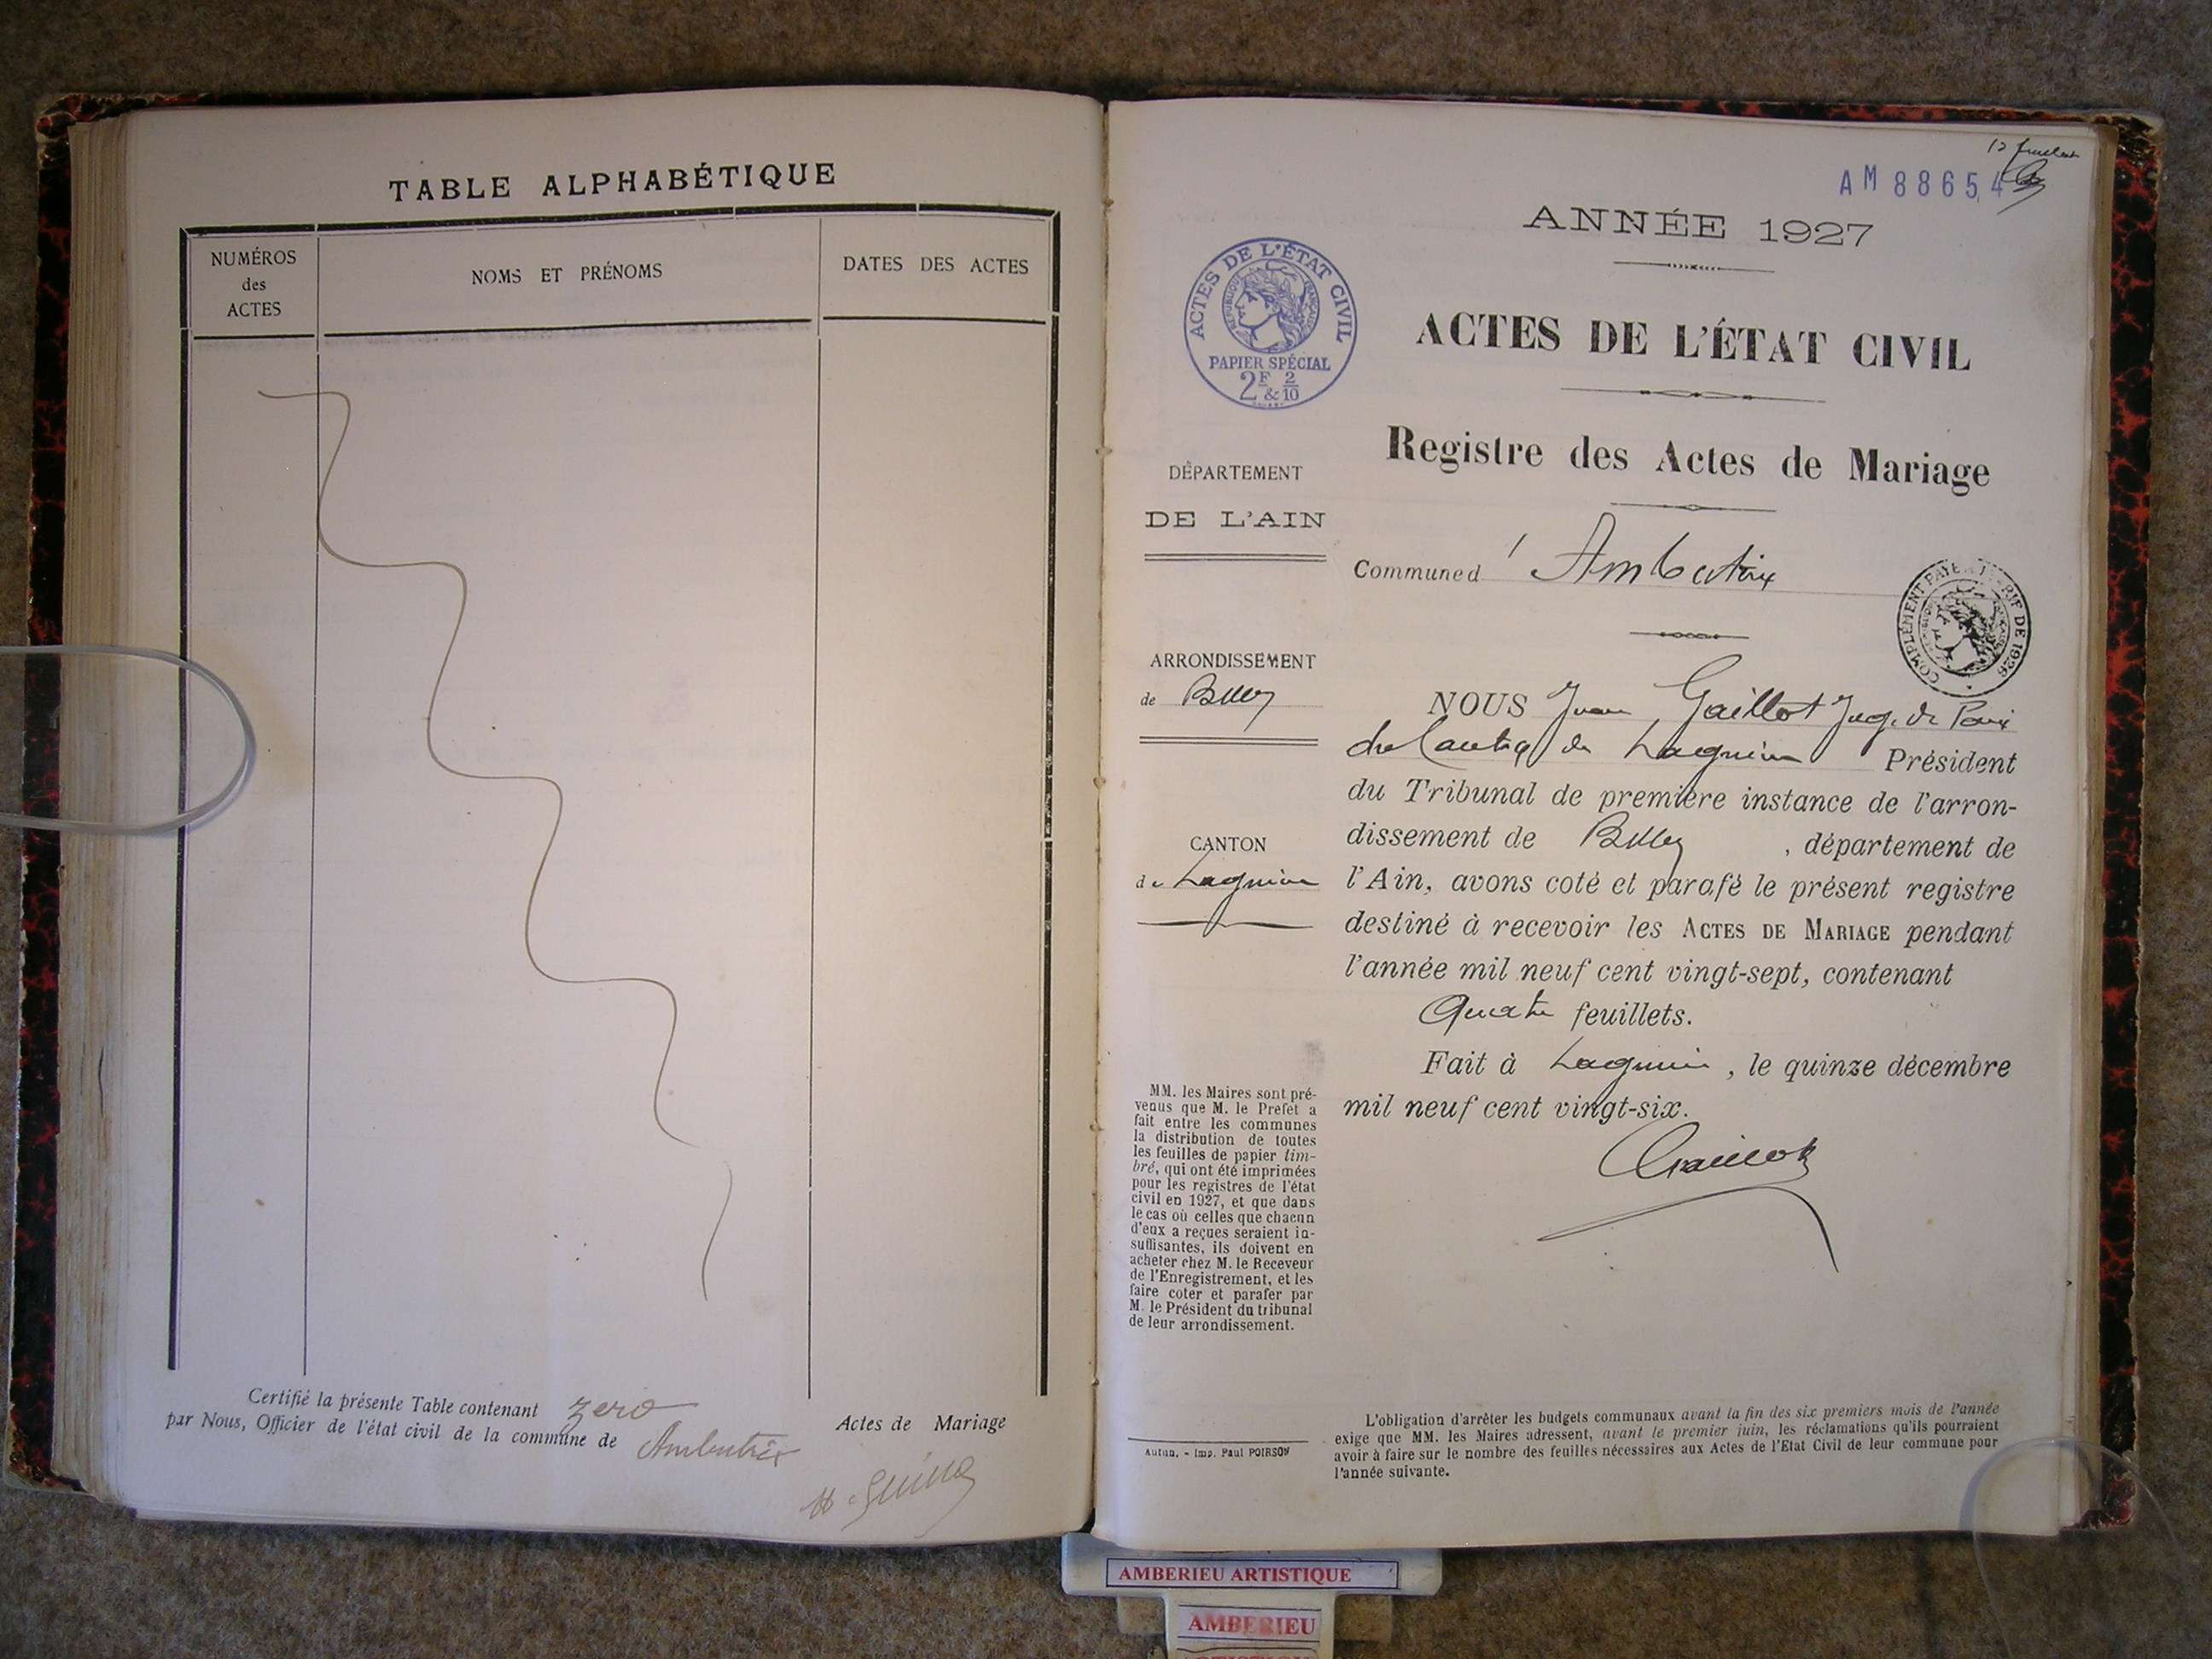 TABLE ALPHABÉTIQUE
NUMÉROS
des
ACTES
NOMS ET PRÉNOMS
DATES DES ACTES
Certifié la présente Table contenant zero Actes de Mariage
par Nous, Officier de l'état civil de la commune de Ambutrix
AM 88654
ANNÉE 1927
ACTES DE L'ÉTAT CIVIL
RÉPUBLIQUE FRANÇAISE
PAPIER SPÉCIAL
2F & 2/10
ACTES DE L'ÉTAT CIVIL
Registre des Actes de Mariage
DÉPARTEMENT
DE L'AIN
Commune d' Ambutrix
COMPLÉMENT PAYÉ TARIF DE 1926
ARRONDISSEMENT
de Belley
CANTON
de Lagnieu
NOUS Jean Gaillot Juge de Paix
du Canton de Lagnieu Président
du Tribunal de première instance de l'arron-
dissement de Belley, département de
l'Ain, avons coté et parafé le présent registre
destiné à recevoir les ACTES DE MARIAGE pendant
l'année mil neuf cent vingt-sept, contenant
Quatre feuillets.
Fait à Lagnieu, le quinze décembre
mil neuf cent vingt-six.
Gaillot
MM. les Maires sont pré-
venus que M. le Prefet a
fait entre les communes
la distribution de toutes
les feuilles de papier tim-
bré, qui ont été imprimées
pour les registres de l'état
civil en 1927, et que dans
le cas où celles que chacun
d'eux a reçues seraient in-
suffisantes, ils doivent en
acheter chez M. le Receveur
de l'Enregistrement, et les
faire coter et parafer par
M. le Président du tribunal
de leur arrondissement.
Autun. - Imp. Paul POIRSON
L'obligation d'arrêter les budgets communaux avant la fin des six premiers mois de l'année
exige que MM. les Maires adressent, avant le premier juin, les réclamations qu'ils pourraient
avoir à faire sur le nombre des feuilles nécessaires aux Actes de l'Etat Civil de leur commune pour
l'année suivante.
AMBERIEU ARTISTIQUE
AMBERIEU
ARTISTIQUE